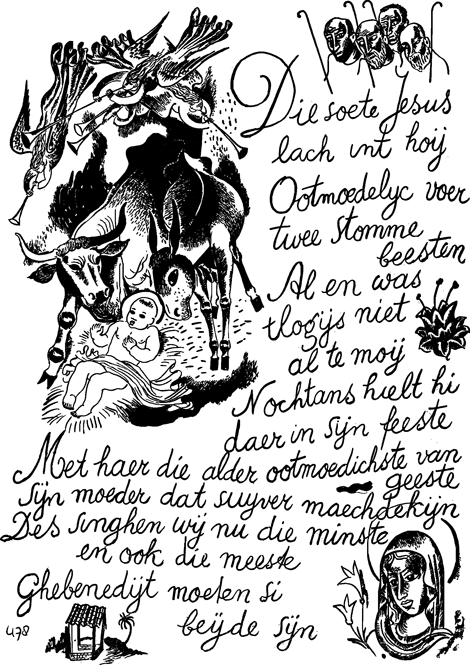 Die soete Jesus
lach int hoij
Ootmoedelyc voer
twee stomme
beesten
Al en was
tlogijs niet
al te moij
Nochtans hielt hi
daer in sijn feeste
Met haer die alder ootmoedichste van
geeste
Sijn moeder dat suyver maechdekijn
Des singhen wij nu die minste
en ook die meeste
Ghebenedijt moeten si
beijde sijn
478